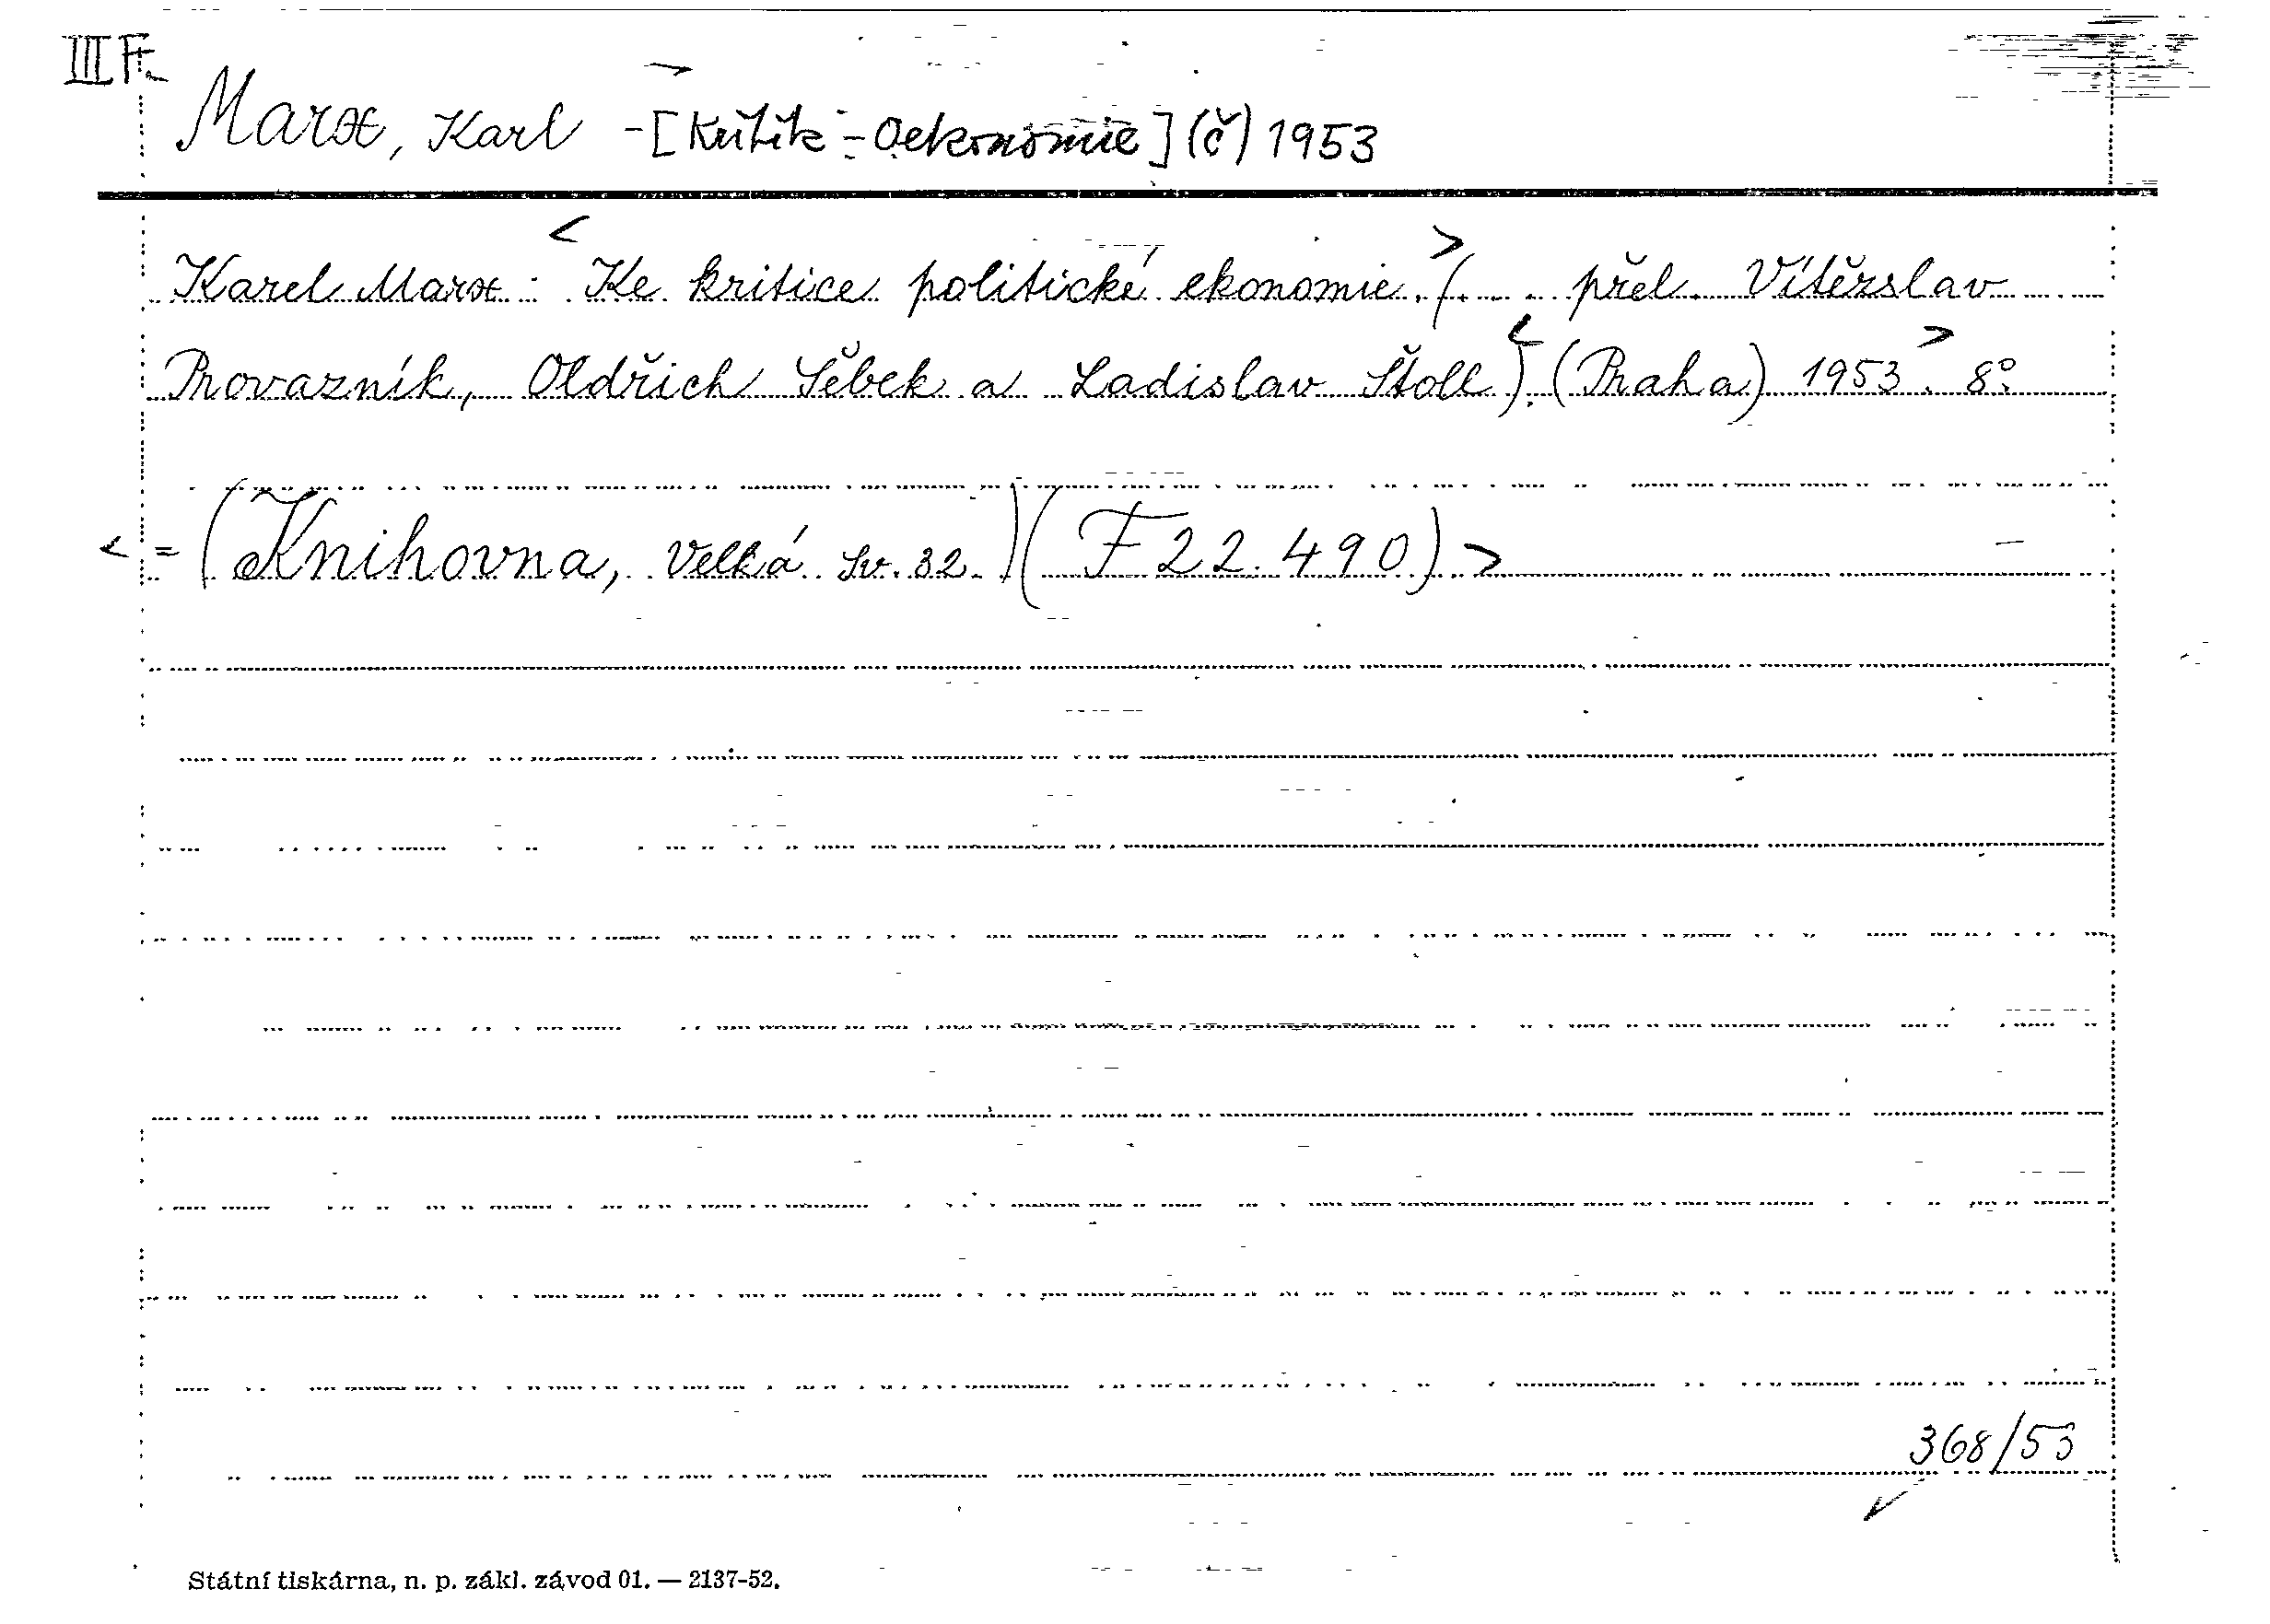 III Ft.
Marx, Karl - [Kritik - Oekonomie] (č) 1953
Karel Marx: <Ke kritice politické ekonomie.> (... přel. Vítězslav
Provazník, Oldřich Sěbek a Ladislav Štoll). <(Praha) 1953>. 8°.
< = (Knihovna, Velká Sv. 32.) (F 22.490) >
368/53
Státní tiskárna, n. p. zákl. závod 01. — 2137-52.